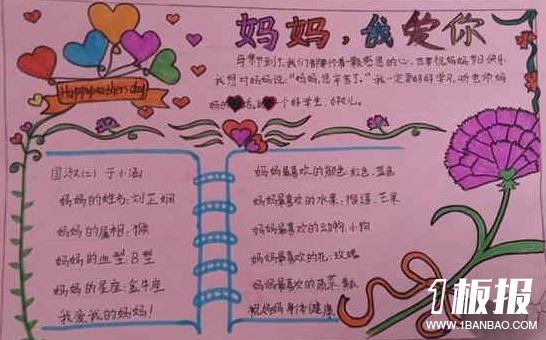 妈妈，我爱你
Happymothersday
母亲节到了，我们都怀着一颗感恩的心，
祝妈妈节日快乐
我想对妈妈说："妈妈，您辛苦了。"我一定会好好学习，听老师妈
妈的话，做一个好学生、好孩儿。
国淑(二) 于小涵
妈妈的姓名：刘芷娟
妈妈的属相：猴
妈妈的血型：B型
妈妈的星座：金牛座
我爱我的妈妈！
妈妈最喜欢的颜色：红色、蓝色
妈妈最喜欢的水果：榴莲、芒果
妈妈最喜欢的动物：小狗
妈妈最喜欢的花：玫瑰
妈妈最喜欢的蔬菜：
祝妈妈身体健康
1板报
WWW.1BANBAO.COM